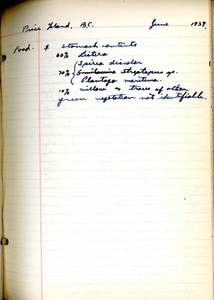 Price Island, B.C. June 1939.
Food. & stomach contents
60% Listera
(Spirea discolor
30% (Smilacina streptopus sp.
(Plantago maritima.
10% willow & traces of other
green vegetation not identifiable.